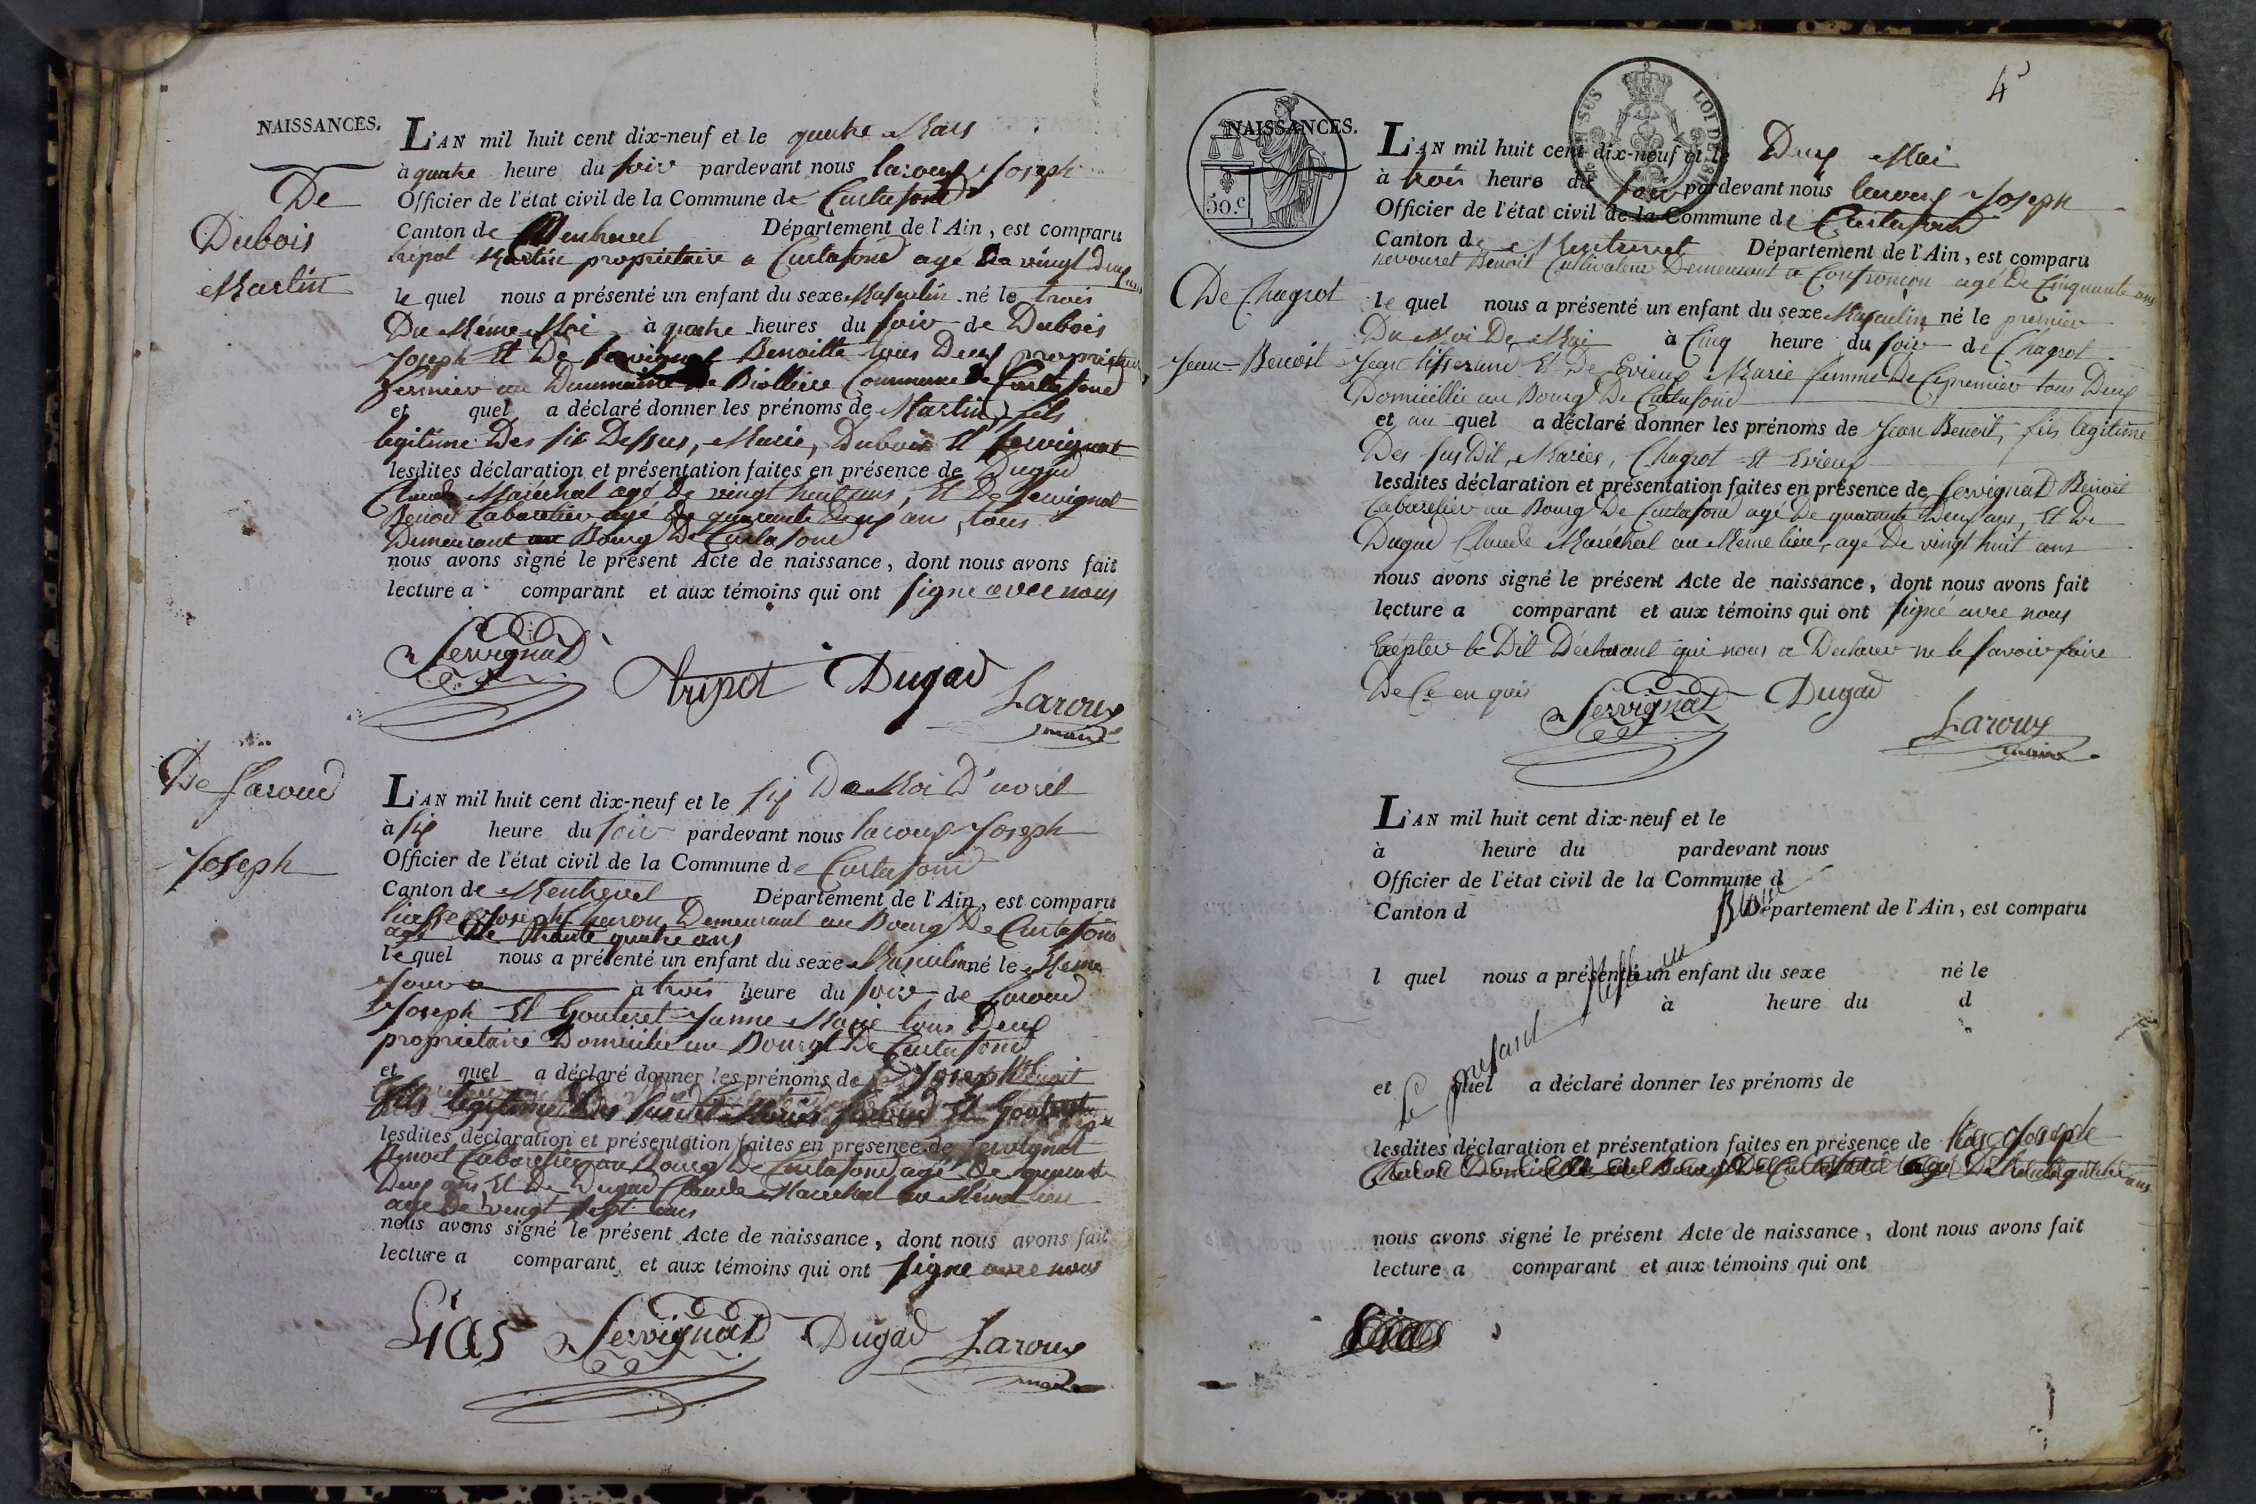 NAISSANCES.
De
Dubois
Martin
L'AN mil huit cent dix-neuf et le quatre Mars
à quatre heure du soir pardevant nous laroux Joseph
Officier de l'état civil de la Commune de Curtafond
Canton de Montrevel Département de l'Ain, est comparu
tripot Martin propriétaire a Curtafond agé de vingt deux ans
le quel nous a présenté un enfant du sexe Masculin né le trois
Du Même Moi à quatre heures du soir de Dubois
Joseph Et De servignat Benoitte tous Deux
fermier au Dommaine de Biolliere Commune De Curtafond
et quel a déclaré donner les prénoms de Martin, fils
legitime Des sit Dessus, Marié, Dubois Et servignat
lesdites déclaration et présentation faites en présence de Dugad
Claude Maréchal agé de vingt huit ans, Et De servignat
Benoit Cabaretier agé de quarante deux an, tous
Demeurant au Bourg De Curtafond
nous avons signé le présent Acte de naissance, dont nous avons fait
lecture a comparant et aux témoins qui ont signé avec nous
Servignat tripot Dugad Laroux
maire
De faroud
Joseph
L'AN mil huit cent dix-neuf et le six De Moi D'avril
à six heure du soir pardevant nous laroux Joseph
Officier de l'état civil de la Commune de Curtafond
Canton de Montrevel Département de l'Ain, est comparu
Joseph Demeurant au Bourg De Curtafond
agé De trante quatre ans
le quel nous a présenté un enfant du sexe Masculin né le Meme
Jour à trois heure du soir de faroud
Joseph Et Gouteret Janne Marie tous Deux
proprietaire Domicilié au Bourgt De Curtafond
et quel a déclaré donner les prénoms de Joseph
fils legitime Des susdit Mariés faroud Et Gouteret
lesdites déclaration et présentation faites en présence de servignat
Benoit Cabaretier au Bourg De Curtafond agé De quarante
Deux ans Et De Dugad Claude Maréchal au Même lieu
agé De vingt sept ans
nous avons signé le présent Acte de naissance, dont nous avons fait
lecture a comparant et aux témoins qui ont signé avec nous
Lias Servignat Dugad Laroux
maire
4
50.c
NAISSANCES.
De Chagrot
Jean-Benoit
L'AN mil huit cent dix-neuf et le Deux Mai
à trois heure du soir pardevant nous laroux Joseph
Officier de l'état civil de la Commune de Curtafond
Canton de Montrevel Département de l'Ain, est comparu
Benoit Cultivateur Demeurant a Confrançon agé De Cinquante ans
le quel nous a présenté un enfant du sexe Masculin né le premier
Du Moi De Mai à Cinq heure du soir de Chagrot
Jean tisserand Et De Evieux Marie femme De Cepremier tous Deux
Domicillié au Bourg De Curtafond
et au quel a déclaré donner les prénoms de Jean Benoit, fils legitime
Des susDit, Mariés, Chagrot Et Evieux
lesdites déclaration et présentation faites en présence de servignat Benoit
Cabaretier au Bourg De Curtafond agé De quarante Deux ans, Et De
Dugad Claude Maréchal au Meme lieu, agé De vingt huit ans
nous avons signé le présent Acte de naissance, dont nous avons fait
lecture a comparant et aux témoins qui ont signé avec nous
Excepter le Dit Déclarant qui nous a Declarer ne le savoir faire
De Ce en quis
Servignat Dugad Laroux
maire
L'AN mil huit cent dix-neuf et le
à heure du pardevant nous
Officier de l'état civil de la Commune d
Canton d Département de l'Ain, est comparu
l quel nous a présenté un enfant du sexe né le
à heure du d
et quel a déclaré donner les prénoms de
Le présent
lesdites déclaration et présentation faites en présence de lias Joseph
nous avons signé le présent Acte de naissance, dont nous avons fait
lecture a comparant et aux témoins qui ont
Lias